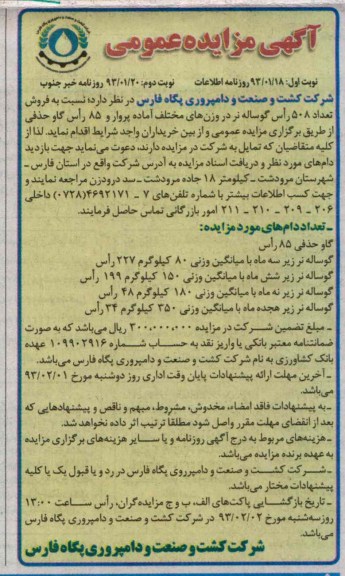 آگهی مزایده عمومی
نوبت اول: ۹۳/۰۱/۱۸ روزنامه اطلاعات نوبت دوم: ۹۳/۰۱/۲۰ روزنامه خبر جنوب
شرکت کشت و صنعت و دامپروری پگاه فارس در نظر دارد؛ نسبت به فروش
تعداد ۵۰۸ رأس گوساله نر در وزن‌های مختلف آماده پروار و ۸۵ رأس گاو حذفی
از طریق برگزاری مزایده عمومی و از بین خریداران واجد شرایط اقدام نماید. لذا از
کلیه متقاضیان که تمایل به شرکت در مزایده دارند، دعوت می‌نماید جهت بازدید
دام‌های مورد نظر و دریافت اسناد مزایده به آدرس شرکت واقع در استان فارس ـ
شهرستان مرودشت ـ کیلومتر ۱۸ جاده مرودشت ـ سد درودزن مراجعه نمایند و
جهت کسب اطلاعات بیشتر با شماره تلفن‌های ۷ - ۴۶۹۲۱۷۱(۰۷۲۸) داخلی
۲۰۶ - ۲۰۹ - ۲۱۰ - ۲۱۱ امور بازرگانی تماس حاصل فرمایند.
ـ تعداد دام‌های مورد مزایده:
گاو حذفی ۸۵ رأس
گوساله نر زیر سه ماه با میانگین وزنی ۸۰ کیلوگرم ۲۲۷ رأس
گوساله نر زیر شش ماه با میانگین وزنی ۱۵۰ کیلوگرم ۱۹۹ رأس
گوساله نر زیر نه ماه با میانگین وزنی ۱۸۰ کیلوگرم ۴۸ رأس
گوساله نر زیر هجده ماه با میانگین وزنی ۳۵۰ کیلوگرم ۳۴ رأس
ـ مبلغ تضمین شرکت در مزایده ۳۰۰,۰۰۰,۰۰۰ ریال می‌باشد که به صورت
ضمانتنامه معتبر بانکی یا واریز نقد به حساب شماره ۱۰۹۹۰۲۹۱۶ عهده
بانک کشاورزی به نام شرکت کشت و صنعت و دامپروری پگاه فارس می‌باشد.
ـ آخرین مهلت ارائه پیشنهادات پایان وقت اداری روز دوشنبه مورخ ۹۳/۰۲/۰۱
می‌باشد.
ـ به پیشنهادات فاقد امضاء، مخدوش، مشروط، مبهم و ناقص و پیشنهادهایی که
بعد از انقضای مهلت مقرر واصل شود مطلقا ترتیب اثر داده نخواهد شد.
ـ هزینه‌های مربوط به درج آگهی روزنامه و یا سایر هزینه‌های برگزاری مزایده
به عهده برنده مزایده می‌باشد.
ـ شرکت کشت و صنعت و دامپرروی پگاه فارس در رد و یا قبول یک یا کلیه
پیشنهادات مختار می‌باشد.
ـ تاریخ بازگشایی پاکت‌های الف، ب و ج مزایده‌گران، رأس ساعت ۱۳:۰۰
روز سه‌شنبه مورخ ۹۳/۰۲/۰۲ در شرکت کشت و صنعت و دامپروری پگاه فارس
می‌باشد.
شرکت کشت و صنعت و دامپروری پگاه فارس